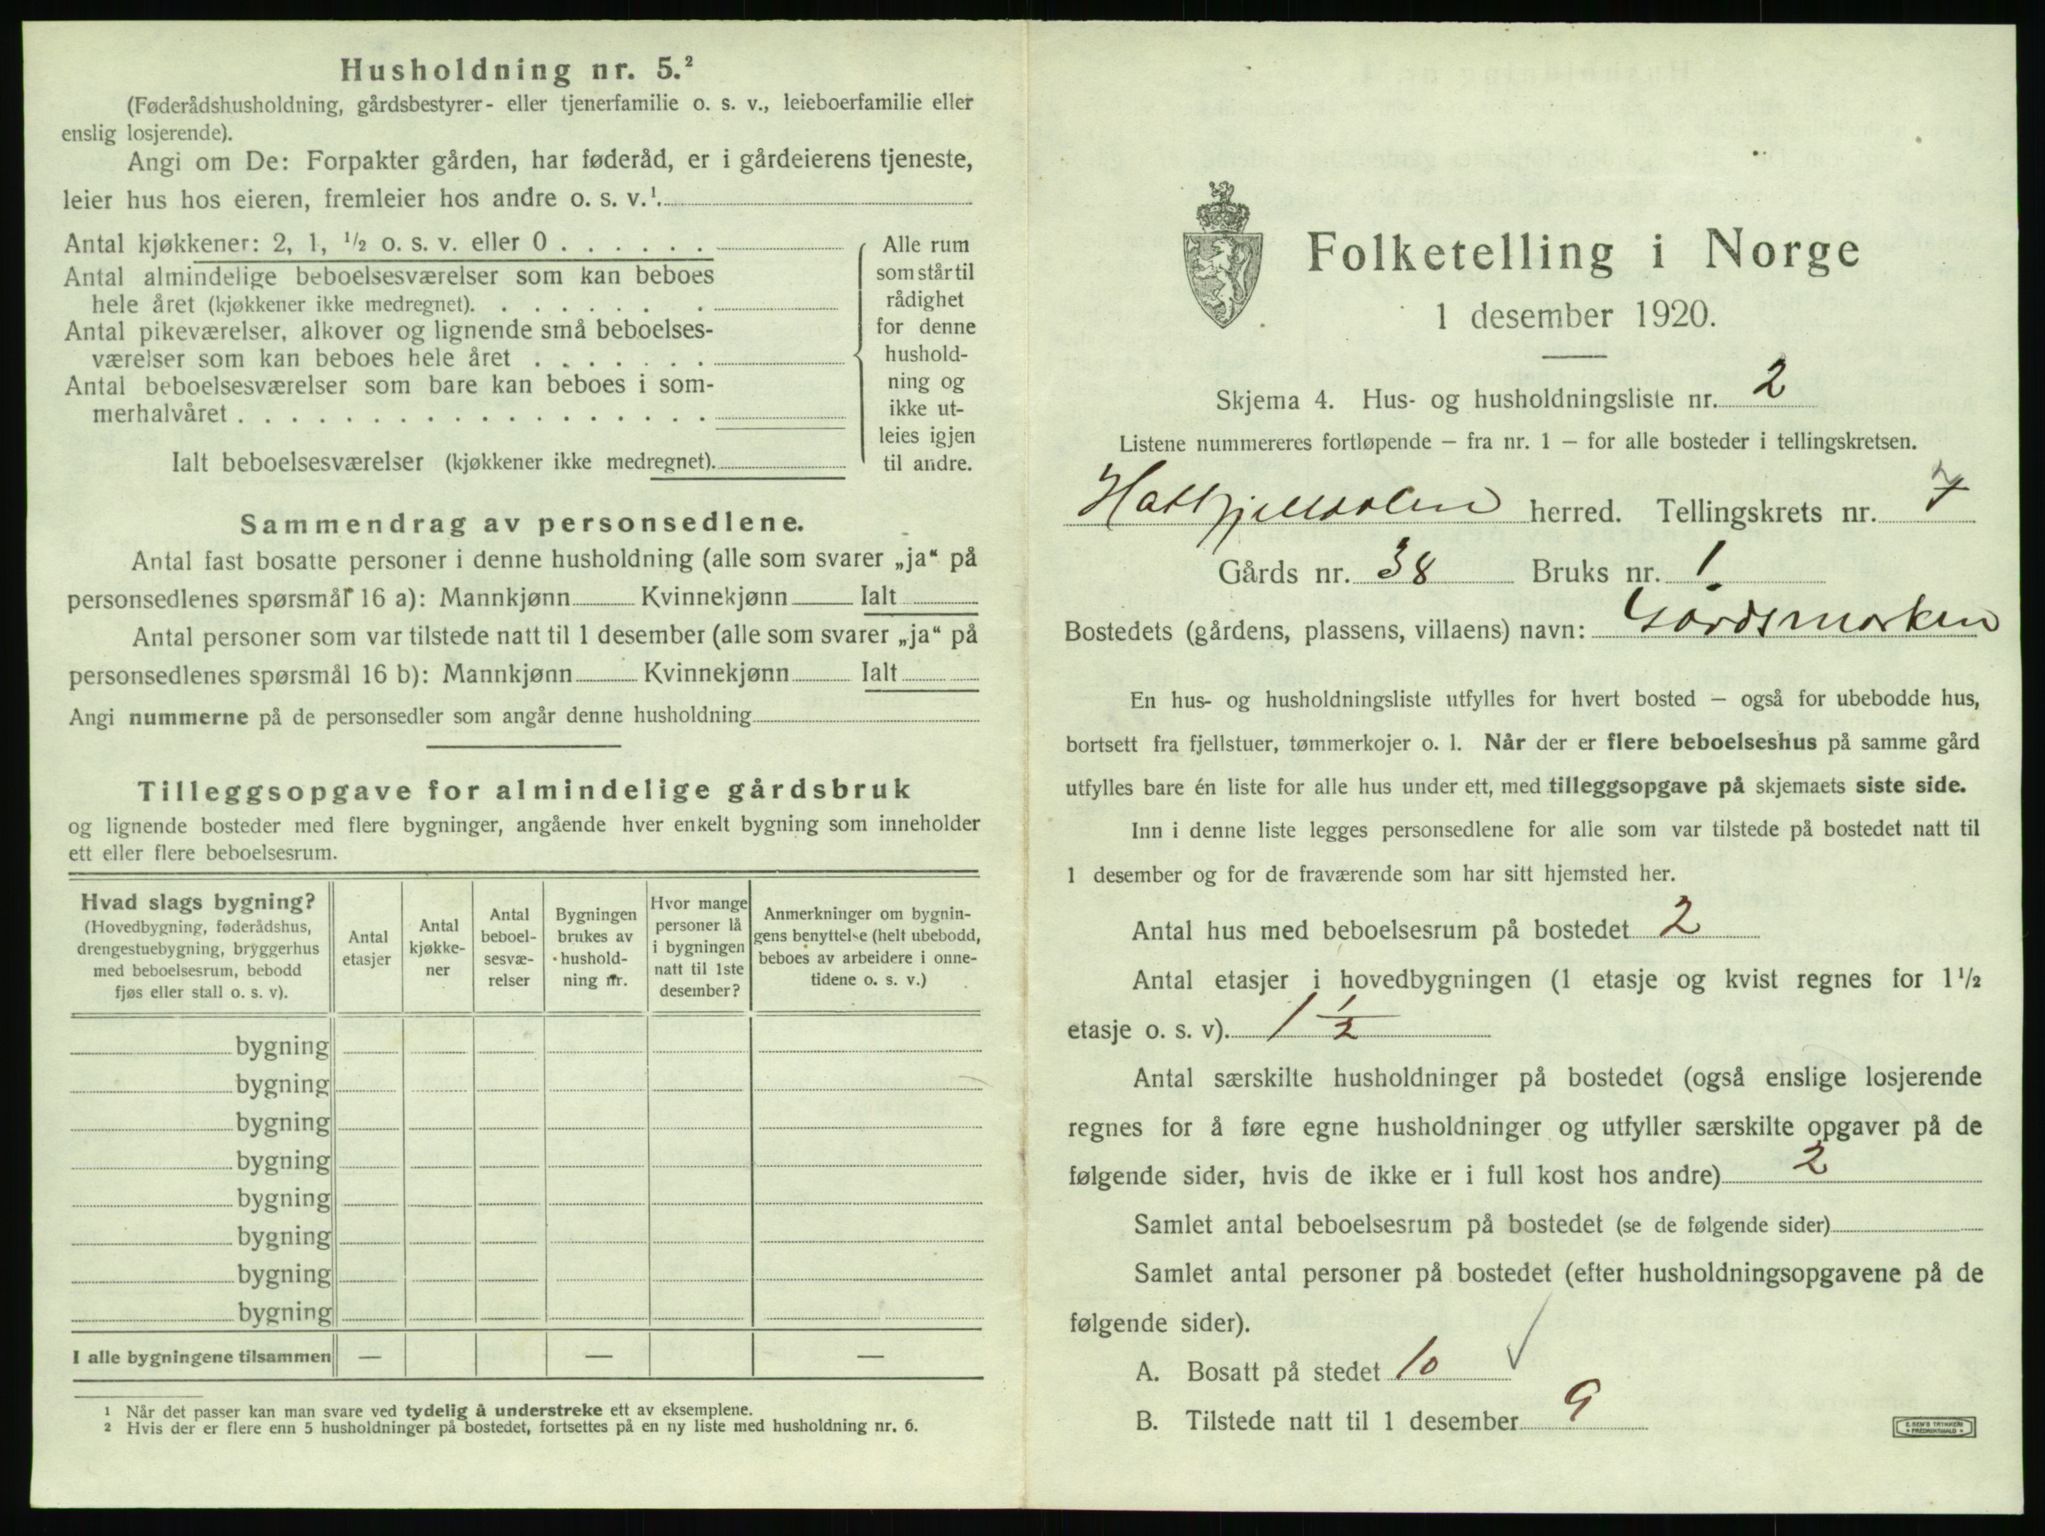 Husholdning nr. 5.²
(Føderådshusholdning, gårdsbestyrer- eller tjenerfamilie o. s. v., leieboerfamilie eller
enslig losjerende).
Angi om De: Forpakter gården, har føderåd, er i gårdeierens tjeneste,
leier hus hos eieren, fremleier hos andre o. s. v.¹.
Antal kjøkkener: 2, 1, ½ o. s. v. eller 0 . . . . . .
Antal almindelige beboelsesværelser som kan beboes
hele året (kjøkkener ikke medregnet). . . . . . . .
Antal pikeværelser, alkover og lignende små beboelses-
værelser som kan beboes hele året . . . . . . .
Antal beboelsesværelser som bare kan beboes i som-
merhalvåret . . . . . . . . . . . . . . . . . .
Ialt beboelsesværelser (kjøkkener ikke medregnet).
Alle rum
som står til
rådighet
for denne
hushold-
ning og
ikke ut-
leies igjen
til andre.
Sammendrag av personsedlene.
Antal fast bosatte personer i denne husholdning (alle som svarer „ja“ på
personsedlenes spørsmål 16 a): Mannkjønn Kvinnekjønn Ialt
Antal personer som var tilstede natt til 1 desember (alle som svarer „ja“ på
personsedlenes spørsmål 16 b): Mannkjønn Kvinnekjønn Ialt
Angi nummerne på de personsedler som angår denne husholdning
Tilleggsopgave for almindelige gårdsbruk
og lignende bosteder med flere bygninger, angående hver enkelt bygning som inneholder
ett eller flere beboelsesrum.
Hvad slags bygning?
(Hovedbygning, føderådshus,
drengestuebygning, bryggerhus
med beboelsesrum, bebodd
fjøs eller stall o. s. v).
Antal
etasjer
Antal
kjøkke-
ner
Antal
beboel-
sesvæ-
relser
Bygningen
brukes av
hushold-
ning nr.
Hvor mange
personer lå
i bygningen
natt til 1ste
desember?
Anmerkninger om bygnin-
gens benyttelse (helt ubebodd,
beboes av arbeidere i onne-
tidene o. s. v.)
bygning
bygning
bygning
bygning
bygning
bygning
bygning
bygning
I alle bygningene tilsammen — — —
¹ Når det passer kan man svare ved tydelig å understreke ett av eksemplene.
² Hvis der er flere enn 5 husholdninger på bostedet, fortsettes på en ny liste med husholdning nr. 6.
Folketelling i Norge
1 desember 1920.
Skjema 4. Hus- og husholdningsliste nr. 2
Listene nummereres fortløpende — fra nr. 1 — for alle bosteder i tellingskretsen.
Hatfjelldalen herred. Tellingskrets nr. 7
Gårds nr. 38 Bruks nr. 1.
Bostedets (gårdens, plassens, villaens) navn: Gårdsmarken
En hus- og husholdningsliste utfylles for hvert bosted — også for ubebodde hus,
bortsett fra fjellstuer, tømmerkojer o. l. Når der er flere beboelseshus på samme gård
utfylles bare én liste for alle hus under ett, med tilleggsopgave på skjemaets siste side.
Inn i denne liste legges personsedlene for alle som var tilstede på bostedet natt til
1 desember og for de fraværende som har sitt hjemsted her.
Antal hus med beboelsesrum på bostedet 2
Antal etasjer i hovedbygningen (1 etasje og kvist regnes for 1½
etasje o. s. v). 1 ½
Antal særskilte husholdninger på bostedet (også enslige losjerende
regnes for å føre egne husholdninger og utfyller særskilte opgaver på de
følgende sider, hvis de ikke er i full kost hos andre) 2
Samlet antal beboelsesrum på bostedet (se de følgende sider)
Samlet antal personer på bostedet (efter husholdningsopgavene på de
følgende sider).
A. Bosatt på stedet 10 ✓
B. Tilstede natt til 1 desember 9